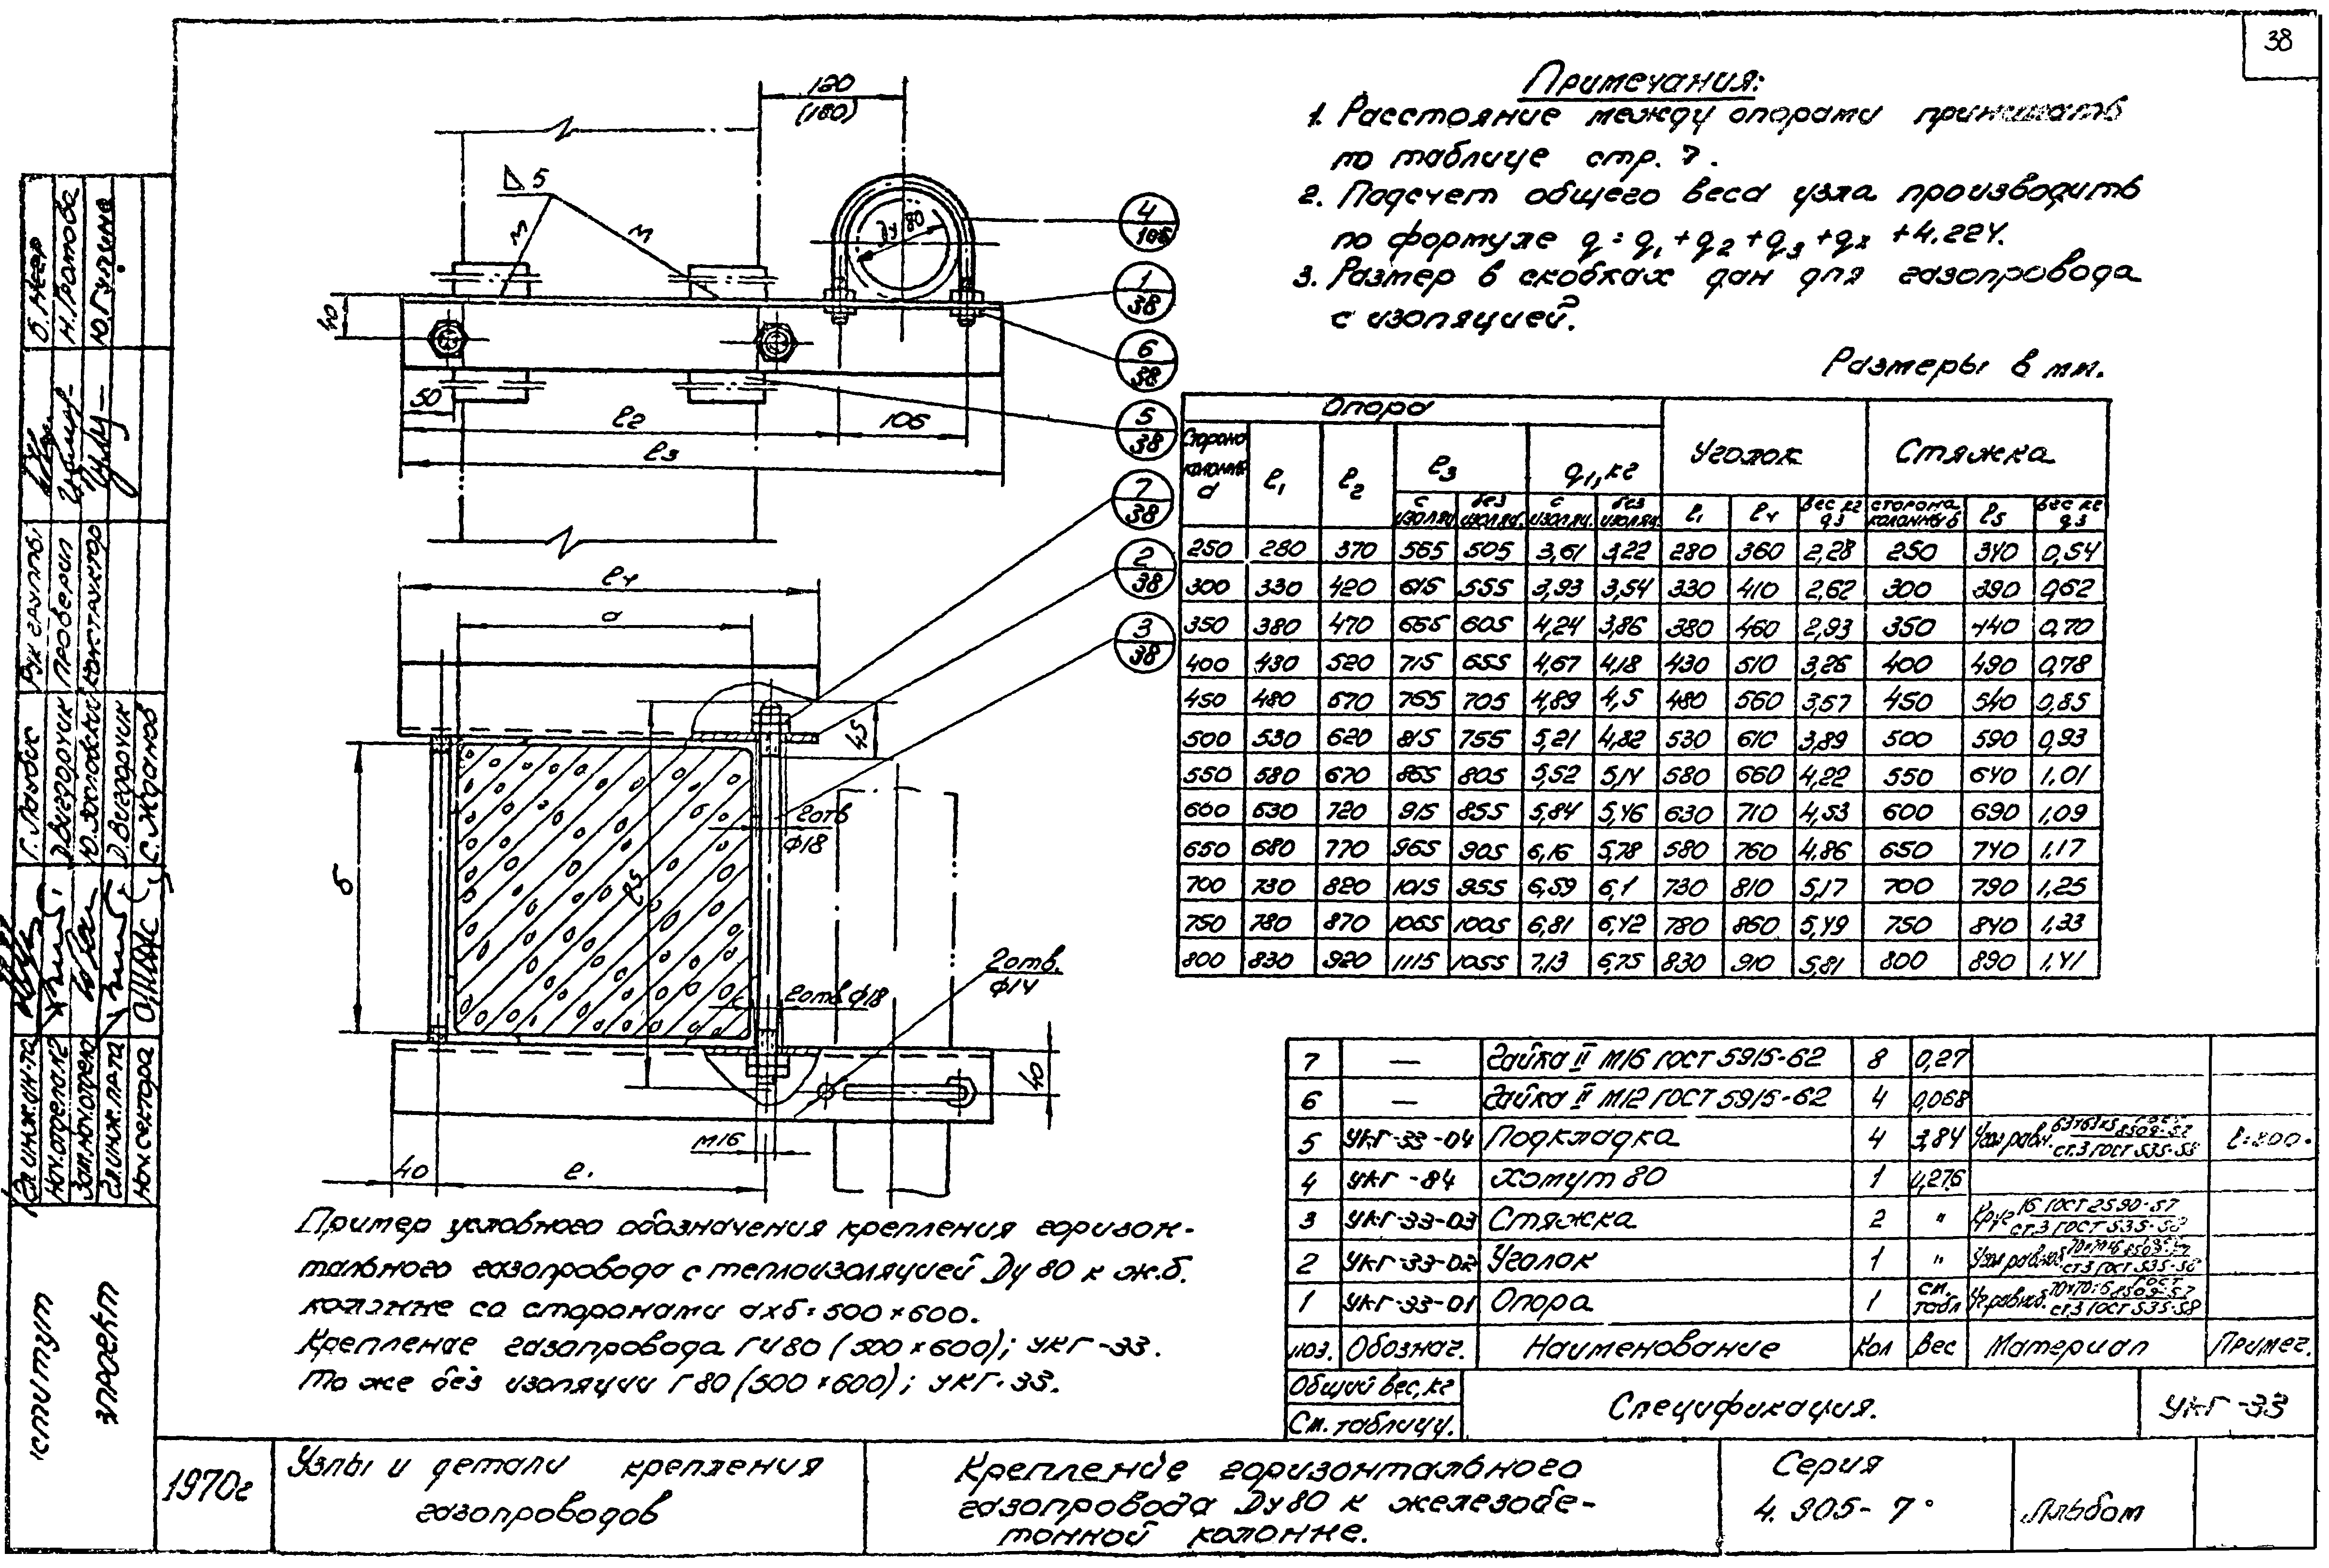 38
Примечания:
1. Расстояние между опорами принимать
по таблице стр. 7.
2. Подсчет общего веса узла производить
по формуле q = q1 + q2 + q3 + qх + 4.224.
3. Размер в скобках дан для газопровода
с изоляцией.
Размеры в мм.
120
(180)
5
м
м
Ду 80
40
50
l2
106
l3
4
106
1
38
6
38
5
38
7
38
2
38
3
38
l4
a
45
б
l5
2отв
ф18
2отв ф18
2отв.
ф14
40
М16
40
l1
Опора Уголок Стяжка
Сторона колонны a l1 l2 l3 q1, кг
с изоляц. без изоляц. с изоляц. без изоляц. l1 l4 вес кг q3 сторона колонны б l5 вес кг q3
250 280 370 565 505 3,61 3,22 280 360 2,28 250 340 0,54
300 330 420 615 555 3,93 3,54 330 410 2,62 300 390 0,62
350 380 470 665 605 4,24 3,86 380 460 2,93 350 440 0,70
400 430 520 715 655 4,67 4,18 430 510 3,26 400 490 0,78
450 480 570 765 705 4,89 4,5 480 560 3,57 450 540 0,85
500 530 620 815 755 5,21 4,82 530 610 3,89 500 590 0,93
550 580 670 865 805 5,52 5,14 580 660 4,22 550 640 1,01
600 630 720 915 855 5,84 5,46 630 710 4,53 600 690 1,09
650 680 770 965 905 6,16 5,78 580 760 4,86 650 740 1,17
700 730 820 1015 955 6,59 6,1 730 810 5,17 700 790 1,25
750 780 870 1065 1005 6,81 6,42 780 860 5,49 750 840 1,33
800 830 920 1115 1055 7,13 6,75 830 910 5,81 800 890 1,41
7 — Гайка II М16 ГОСТ 5915-62 8 0,27
6 — Гайка II М12 ГОСТ 5915-62 4 0,068
5 УКГ-33-04 Подкладка 4 3,84 Угол равн. 63×63×5 ГОСТ 8509-57 ст.3 ГОСТ 535-58 l=800
4 УКГ-84 Хомут 80 1 0,276
3 УКГ-33-03 Стяжка 2 " Круг 16 ГОСТ 2590-57 ст.3 ГОСТ 535-58
2 УКГ-33-02 Уголок 1 " ст3 ГОСТ 535-58
1 УКГ-33-01 Опора 1 см. табл Уг.равноб. 70×70×6 ГОСТ 8509-57 ст.3 ГОСТ 535-58
поз. Обознач. Наименование Кол Вес Материал Примеч.
Общий вес, кг
См. таблицу.
Спецификация.
УКГ-33
Пример условного обозначения крепления горизон-
тального газопровода с теплоизоляцией Ду 80 к ж.б.
колонне со сторонами axб = 500 × 600.
Крепление газопровода ГИ 80 (500 × 600); УКГ-33.
То же без изоляции Г 80 (500 × 600); УКГ-33.
1970г
Узлы и детали крепления
газопроводов
Крепление горизонтального
газопровода Ду 80 к железобе-
тонной колонне.
Серия
4.905-7
Альбом
Гл.инж.ин-та
Нач.отдела №2
Зам.нач.отдела
Гл.инж.пр-та
Нач.сектора
Д.Вигдорчик
Ю.Зословский
Д.Вигдорчик
С.Жданов
Рук группы
Проверил
Конструктор
Н.Громова